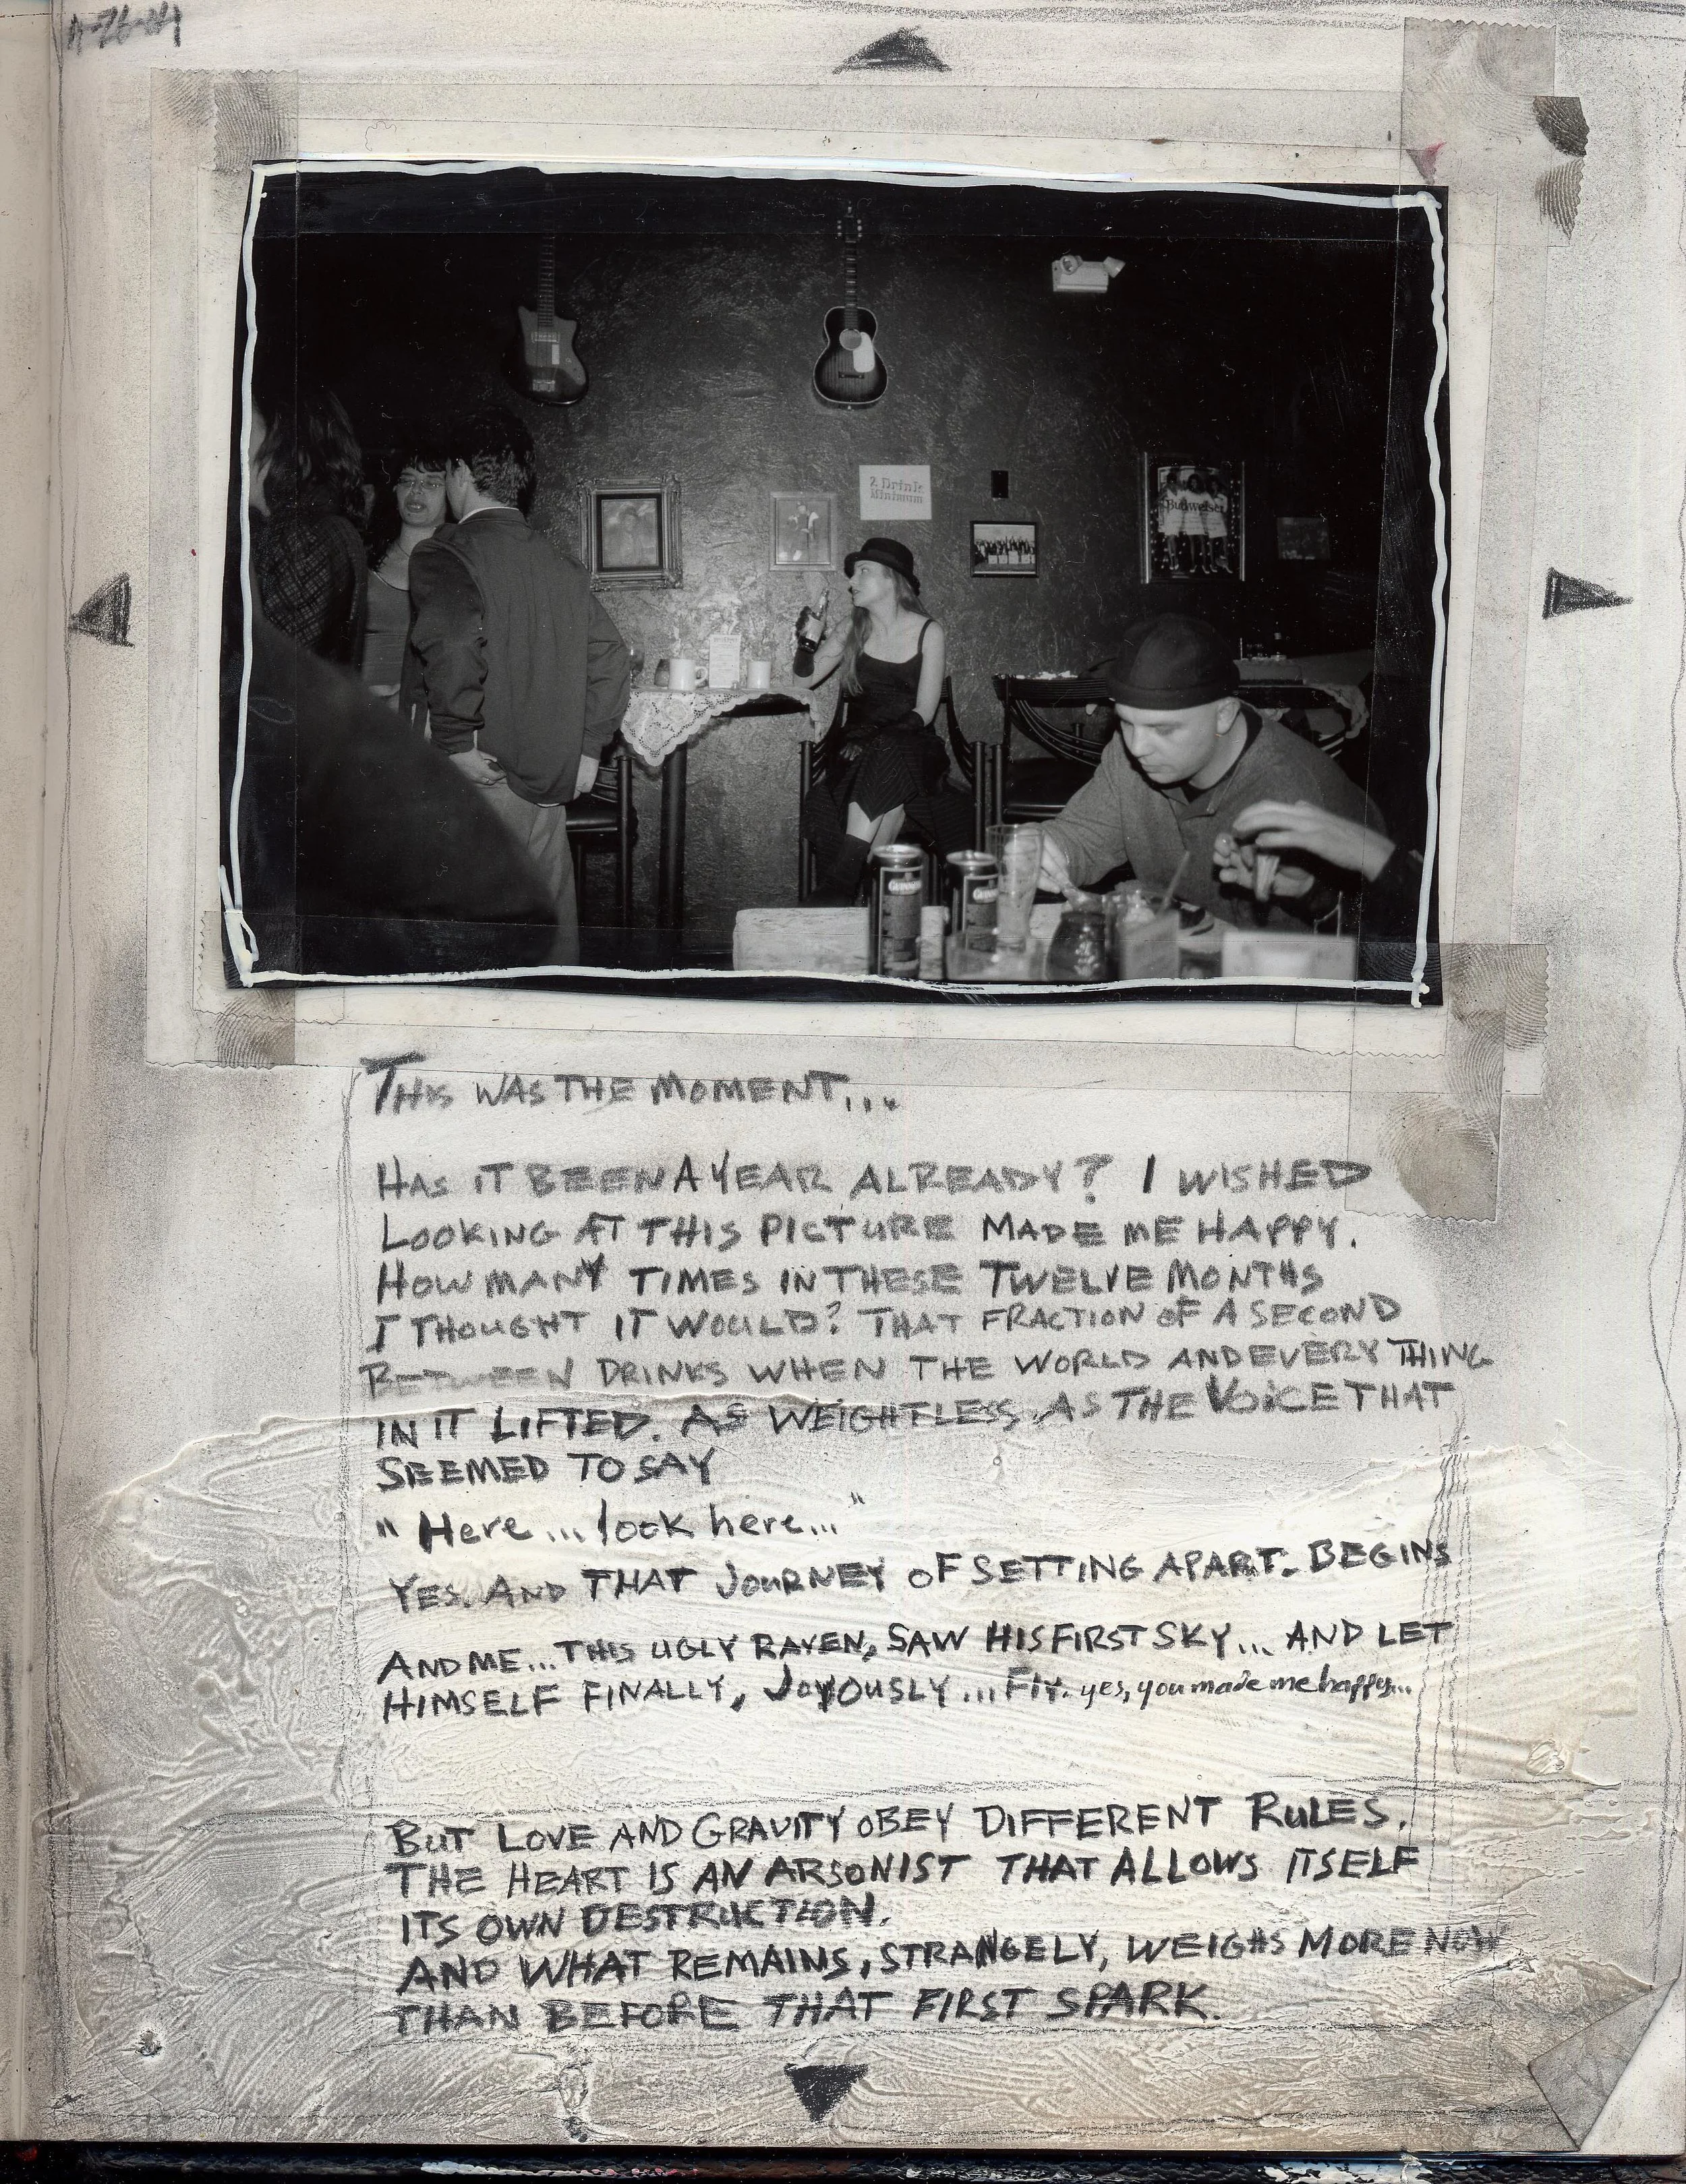 2 Drink
Minimum
Budweiser
GUINNESS
THIS WAS THE MOMENT...
HAS IT BEEN A YEAR ALREADY? I WISHED
LOOKING AT THIS PICTURE MADE ME HAPPY.
HOW MANY TIMES IN THESE TWELVE MONTHS
I THOUGHT IT WOULD? THAT FRACTION OF A SECOND
BETWEEN DRINKS WHEN THE WORLD AND EVERYTHING
IN IT LIFTED. AS WEIGHTLESS AS THE VOICE THAT
SEEMED TO SAY
"Here...look here..."
YES. AND THAT JOURNEY OF SETTING APART. BEGINS
AND ME...THIS UGLY RAVEN, SAW HIS FIRST SKY... AND LET
HIMSELF FINALLY, JOYOUSLY...FLY. yes, you made me happy...
BUT LOVE AND GRAVITY OBEY DIFFERENT RULES.
THE HEART IS AN ARSONIST THAT ALLOWS ITSELF
ITS OWN DESTRUCTION.
AND WHAT REMAINS, STRANGELY, WEIGHS MORE NOW
THAN BEFORE THAT FIRST SPARK.